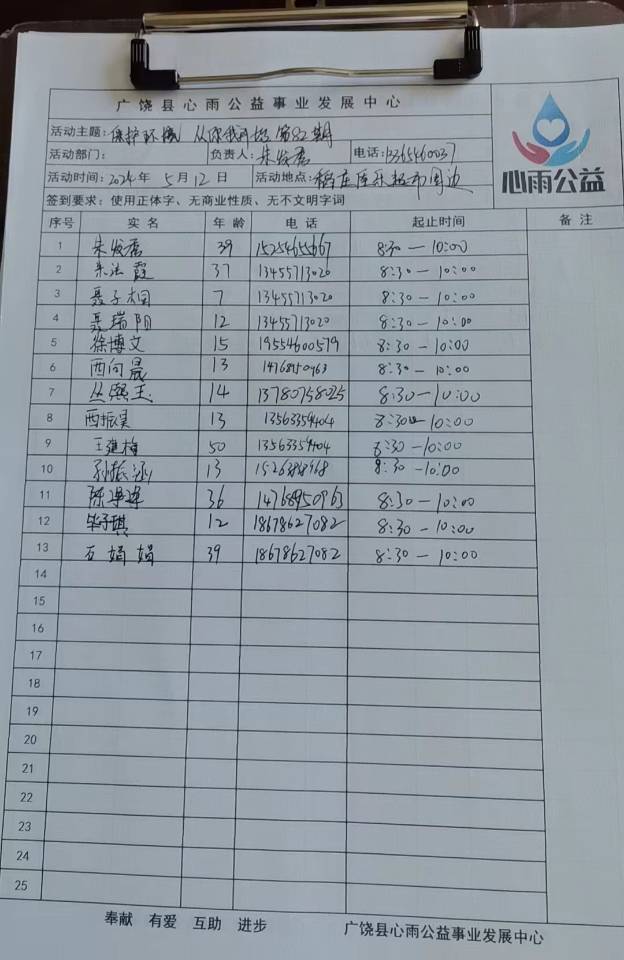 广饶县心雨公益事业发展中心
活动主题：保护环境 从你我开始 第82期
活动部门： 负责人：朱发磊 电话：13365460037
活动时间：2024年 5月12日 活动地点：稻庄 超市周边
签到要求：使用正体字、无商业性质、无不文明字词
心雨公益
序号 实名 年龄 电话 起止时间 备注
1 朱发磊 39 15254655667 8:30—10:00
2 霞 37 13455713020 8:30—10:00
3 聂子桐 7 13455713020 8:30—10:00
4 聂瑞阳 12 13455713020 8:30—10:00
5 徐博文 15 19554600579 8:30—10:00
6 西向晨 13 14768950963 8:30—10:00
7 丛熙玉 14 13780758025 8:30—10:00
8 西振昊 13 13563359404 8:30—10:00
9 王建梅 50 13563359404 8:30—10:00
10 孙振涵 13 8:30—10:00
11 陈 36 14768950963 8:30—10:00
12 毕子琪 12 18678627082 8:30—10:00
13 石娟娟 39 18678627082 8:30—10:00
14
15
16
17
18
19
20
21
22
23
24
25
奉献 有爱 互助 进步 广饶县心雨公益事业发展中心